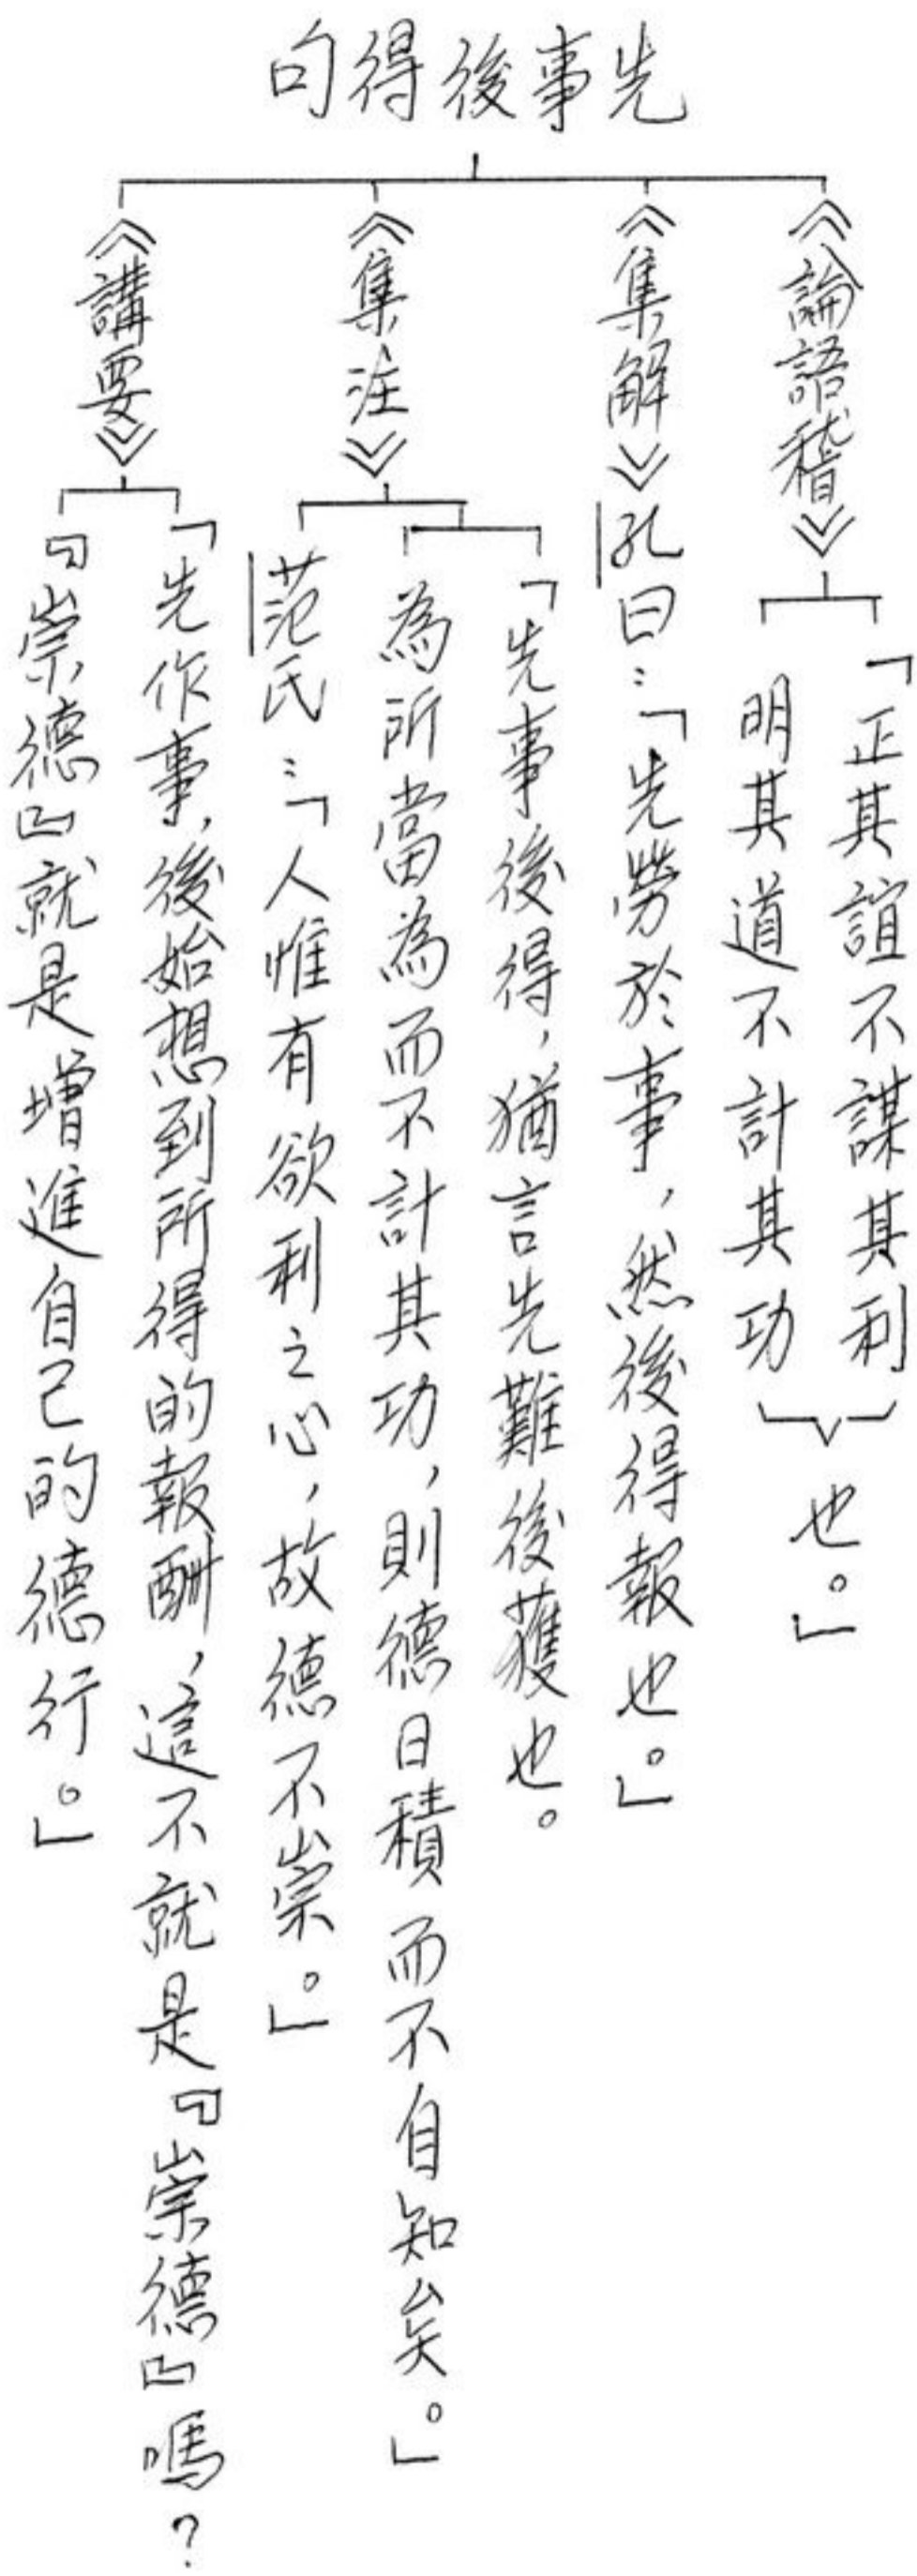 先事後得句
《論語稽》
「正其誼不謀其利
明其道不計其功
也。」
《集解》孔曰：「先勞於事，然後得報也。」
《集注》
「先事後得，猶言先難後獲也。
為所當為而不計其功，則德日積而不自知矣。」
范氏：「人惟有欲利之心，故德不崇。」
《講要》
「先作事，後始想到所得的報酬，這不就是『崇德』嗎？
『崇德』就是增進自己的德行。」